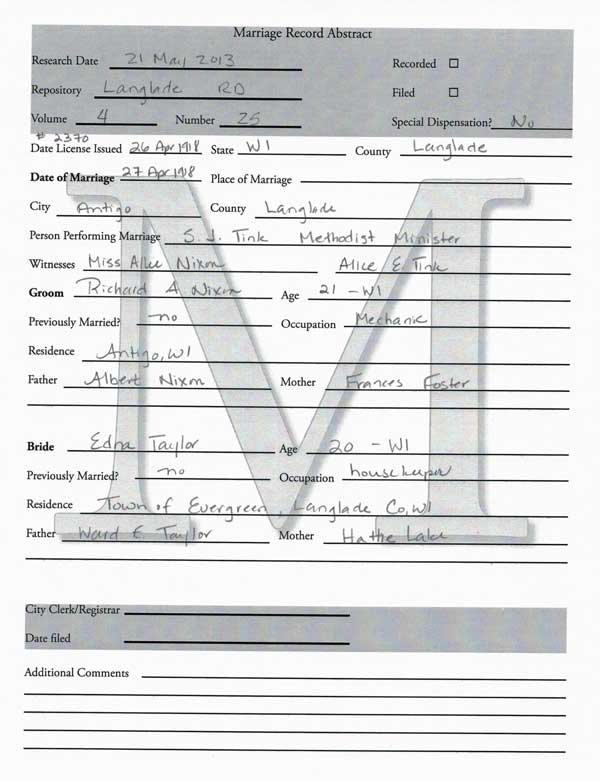 Marriage Record Abstract
Research Date 21 May 2013 Recorded ☐
Repository Langlade RD Filed ☐
Volume 4 Number 25 Special Dispensation? No
# 2370
Date License Issued 26 Apr 1918 State WI County Langlade
Date of Marriage 27 Apr 1918 Place of Marriage
City Antigo County Langlade
Person Performing Marriage S. J. Tink Methodist Minister
Witnesses Miss Nixon Alice E. Tink
Groom Richard A. Nixon Age 21 - WI
Previously Married? no Occupation Mechanic
Residence Antigo, WI
Father Albert Nixon Mother Frances Foster
Bride Edna Taylor Age 20 - WI
Previously Married? no Occupation housekeeper
Residence Town of Evergreen, Langlade Co, WI
Father Ward E. Taylor Mother Lake
City Clerk/Registrar
Date filed
Additional Comments
M